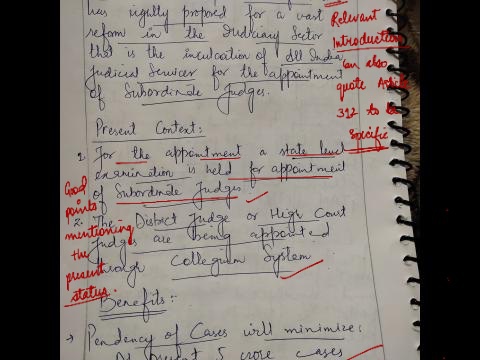 has rightly proposed for a vast
reform in the Judiciary Sector
that is the inculcation of All India
Judicial Services for the appointment
of Subordinate Judges.
Relevant
Introduction
Can also
quote Article
312 to be
Specific
Present Context:
1. For the appointment a state level
examination is held for appointment
of Subordinate Judges.
2. The District Judge or High Court
Judges are being appointed
through Collegium System
Good
points
mentioning
the
present
status.
Benefits:-
→ Pendency of Cases will minimize:
At present 5 crore cases